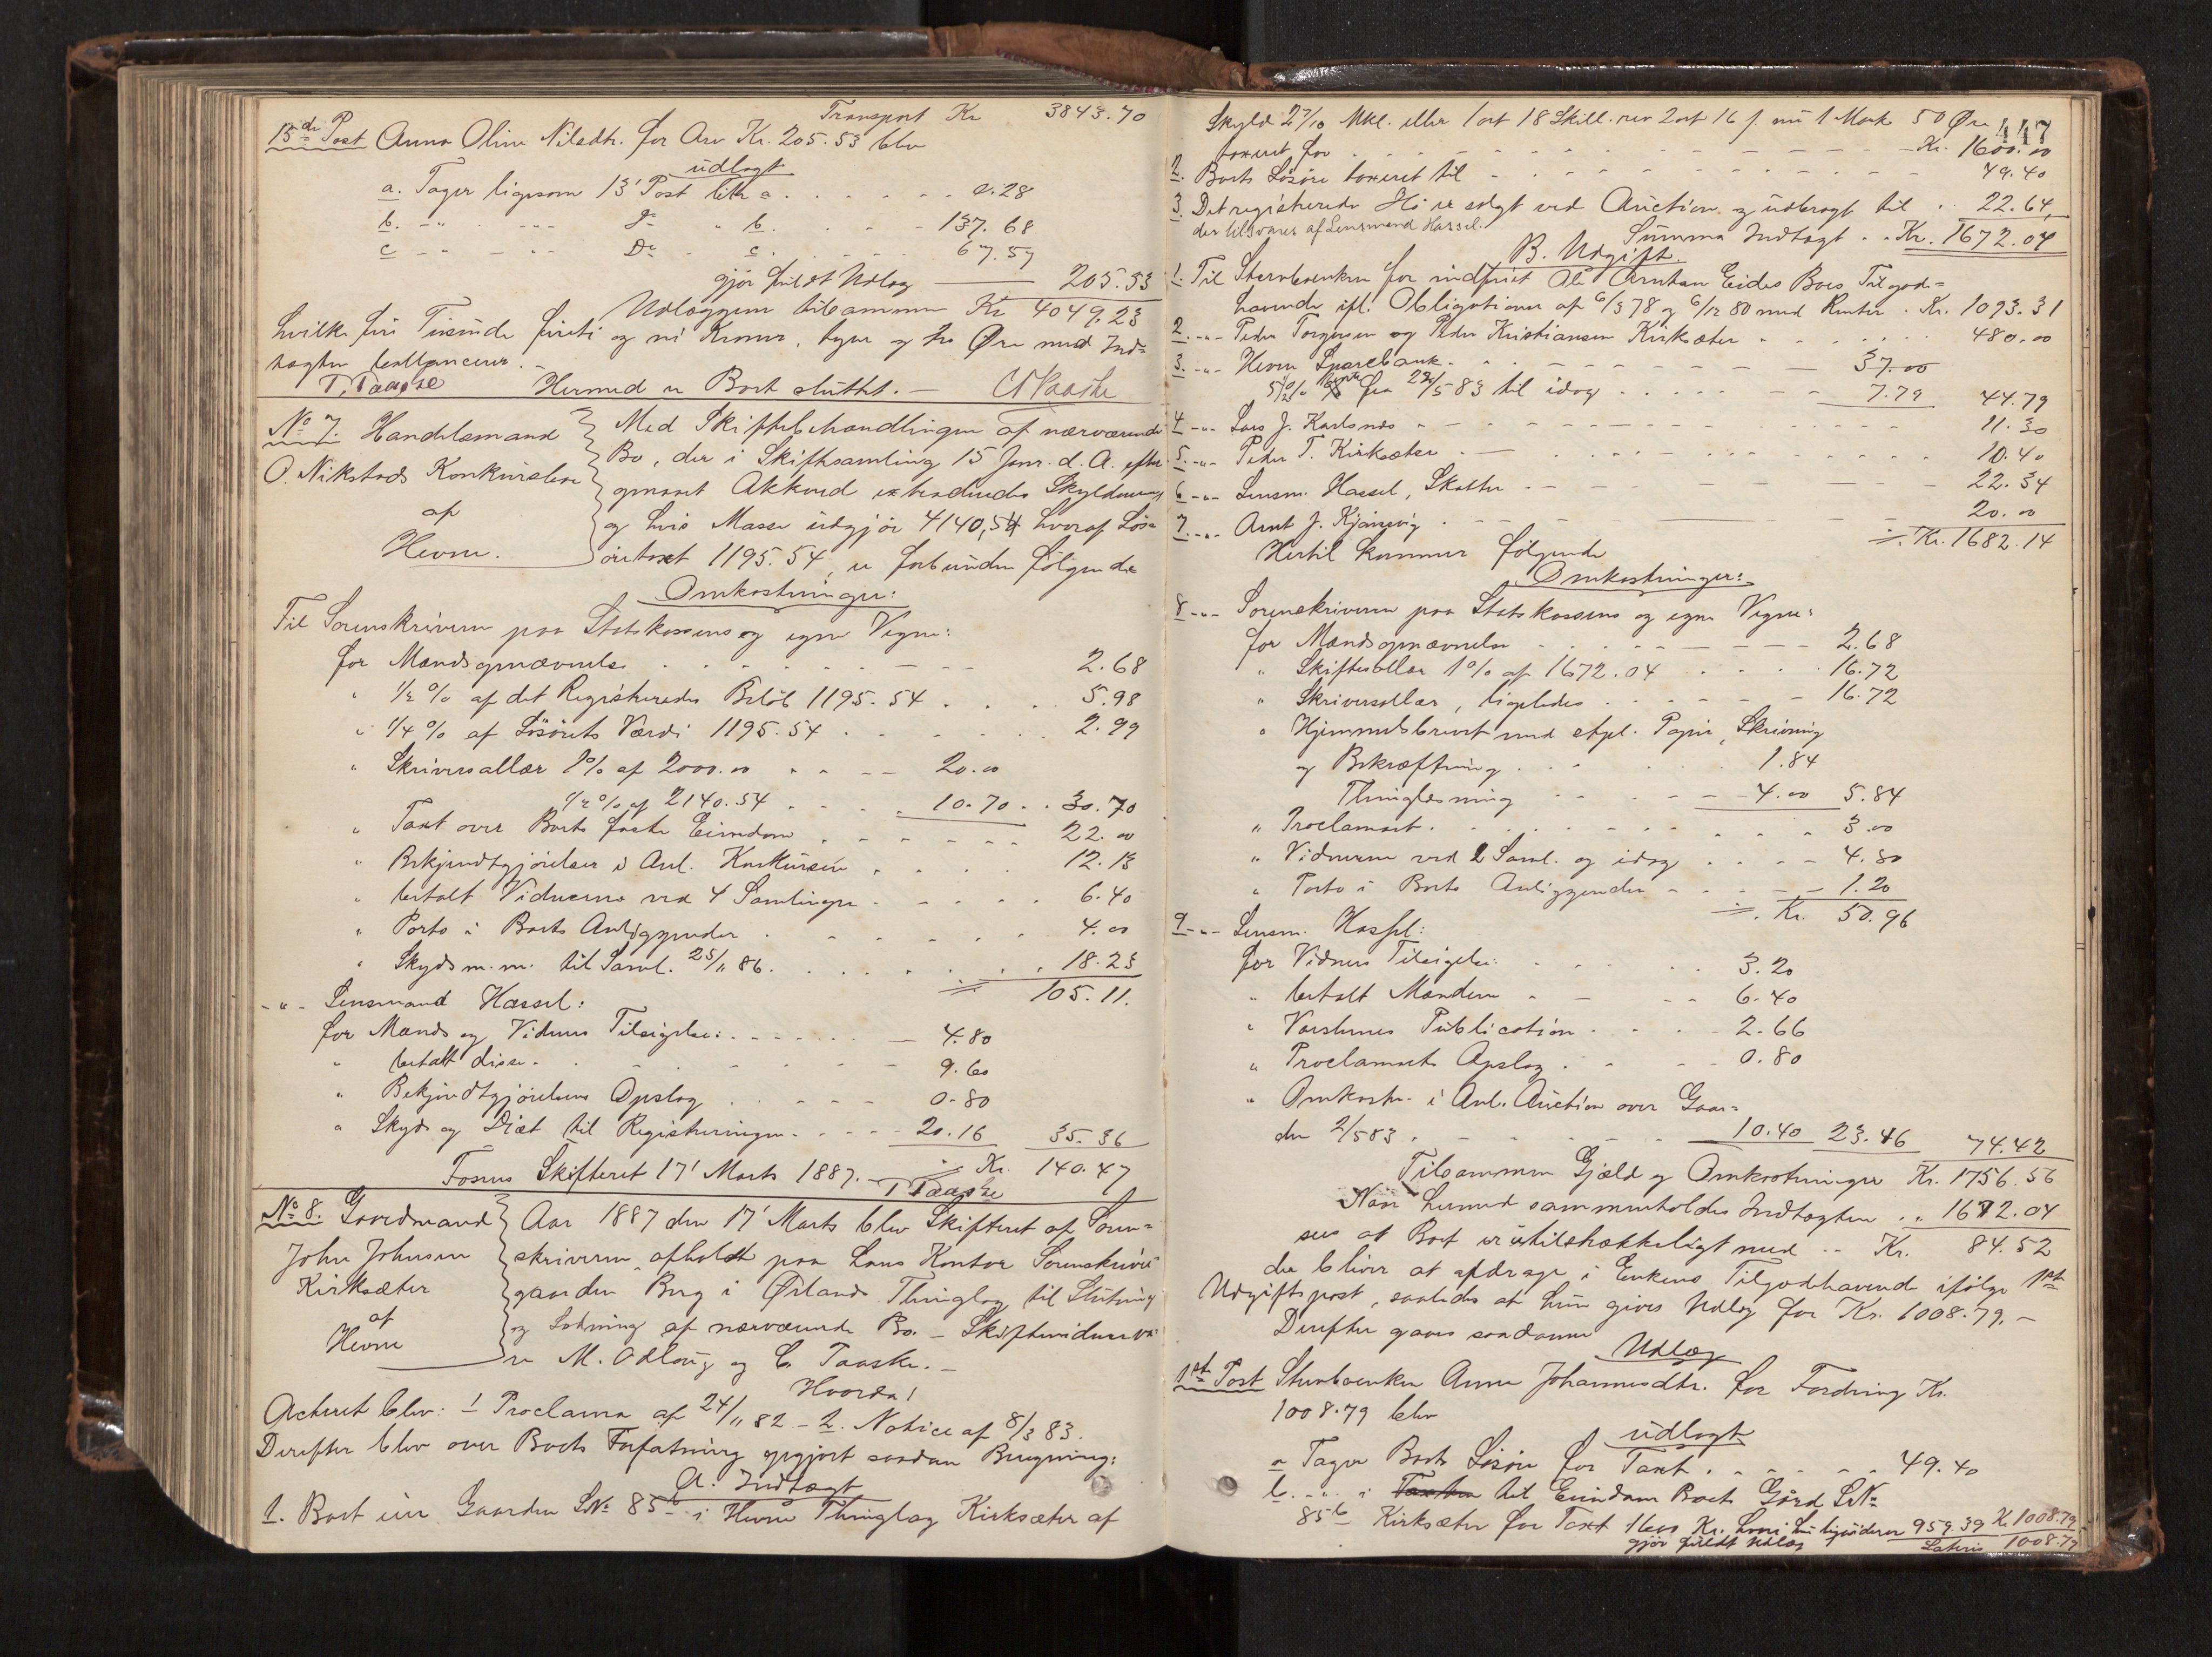 Transport Kr 3843.70
15de Post Anna Oline Nilsdtr. for Arv Kr. 205.53 blev
udlagt
a. Tager ligesom 13' Post litr a . . . . . 0.28
b. -"- -"- Do " b. . . . 137.68
c - " - -"- Do . c. . . . . 67.57
gjör fuldt Udlæg 205.53
Udlæggene tilsammen Kr 4049.23
hvilke fire Tusinde fireti og ni Kroner, tyve og tre Øre med Ind-
tægten ballancerer. -
T. Paaske Hermed er Boet sluttet. - C. Paaske
No 7. Handelsmand
O. Nikstads Konkursbo
af
Hevne.
Med Skiftebehandlingen af nærværende
Bo, der i Skiftesamling 15 Janr. d. A. efter
opnaaet Akkord extraderedes Skyldneren
og hvis Masse udgjör 4140,54 hvoraf Lös-
öretaxt 1195.54, er forbunden fölgende
Omkostninger:
Til Sorenskriveren paa Statskassens og egne Vegne:
for Mandsopnævnelse . . . . . . 2.68
" 1/2 % af det Registrerede Belöb 1195.54 . . . . 5.98
" 1/4 % af Lösörets Værdi 1195.54 . . . . . . 2.99
" Skriversallær 1% af 2000.00 . . - - 20.00
1/2 % af 2140.54 . . . . 10.70 . . 30.70
" Taxt over Boets faste Eiendom . . . . . . 22.00
" Bekjendtgjörelser i Anl. Konkursen . . . . 12.13
" betalt Vidnerne ved 4 Samlinger . . . . . 6.40
" Porto i Boets Anliggender . . . . . . . 4.00
" Skyds m.m. til Saml. 25/11 86. . . . . . . . 18.23
105.11.
- " - Lensmand Hassel:
for Mands og Vidners Tilsigelse: . . . . . . 4.80
" betalt disse. . . . . . . . 9.60
" Bekjendtgjörelsens Opslag . . . . . 0.80
" Skyds og Diæt til Registreringen . . . . 20.16 35.36
Fosens Skifteret 17' Marts 1887. - Kr. 140.47
T Paaske
No 8. Gaardmand
John Johnsen
Kirksæter
af
Hevne
Aar 1887 den 17' Marts blev Skifteret af Soren-
skriveren afholdt paa hans Kontor Sorenskriver-
gaarden Berg i Ørlands Thinglag til Slutning
og Lodning af nærværende Bo. - Skiftevidner va-
re M. Odlaug og C. Paaske. -
Hvorda!
Acteret blev: 1 Proclama af 24/11 82 - 2. Notice af 8/3 83.
Derefter blev over Boets Forfatning opgjort saadan Beregning:
A. Indtægt
1. Boet eier Gaarden LNo 85b i Hevne Thinglag Kirksæter af
447
Skyld 2 7/10 Mkl. eller 1 ort 18 Skill. rev 2 ort 16 ß nu 1 Mark 50 Øre
taxeret for . . . . . . . . . . . Kr. 1600.00
2. Boets Lösöre taxeret til - . . . . . . . . . 49.40
3. Det registrerede Hö er solgt ved Auction og udbragt til . . 22.64,
der tilsvares af Lensmand Hassel.
Summa Indtægt . . Kr. 1672.04
B. Udgift.
1. Til Stervboenken for indfriet Ole Arntsen Eides Boes Tilgode-
havende ifl. Obligationer af 6/3 78 og 6/12 80 med Renter . Kr. 1093.31
2. -"- Peder Torgersen og Peder Kristiansen Kirksæter . . . . . . 480.00
3. -"- Hevne Sparebank . . . . . . . . . 37.00
5 1/2 % Rente fra 22/5 83 til idag . . . . . . 7.79 44.79
4 -"- Lars J. Karlsnes . . . . . . . . . 11.30
5. -"- Peder T. Kirksæter . . . . . . . . . 10.40
6 -"- Lensm. Hassel, Skatter . . . . . . . 22.34
7. -"- Arnt J. Kjörsvig . . . . . . 20.00
Kr. 1682.14
Hertil kommer fölgende
Omkostninger:
8 -"- Sorenskriveren paa Statskassens og egne Vegne:
for Mandsopnævnelse . . . . . . 2.68
" Skiftesallær 1% af 1672.04 . . . . 16.72
" Skriversallær, ligeledes . . . . . . 16.72
" Hjemmelsbrevet med stpl. Papir, Skrivning
og Bekræftning . . . . . . 1.84
Thinglæsning . . . . . 4.00 5.84
" Proclamaet . . . . . . . . . . 3.00
" Vidnerne ved 2 Saml. og idag . . . . 4.80
" Porto i Boets Anliggender - . . . . 1.20
Kr. 50.96
9 -"- Lensm. Hassel:
for Vidners Tilsigelse: . . . . . 3.20
" betalt Mændene . - - - 6.40
" Varslernes Publication . . . . 2.66
" Proclamaets Opslag . . . - 0.80
" Omkostn. i Anl. Auction over Gaar-
den 2/5 83 . . . . . . . 10.40 23.46 74.42
Tilsammen Gjæld og Omkostninger Kr. 1756.56
Naar hermed sammenholdes Indtægten . . 1672.04
sees at Boet er utilstrækkeligt med . . Kr. 84.52
der bliver at afdrage i Enkens Tilgodehavende ifölge 1ste
Udgiftspost, saaledes at hun gives Udlæg for Kr. 1008.79. -
Derefter gaves saadanne
Udlæg
1ste Post Stervboenken Anne Johannesdtr. for Fordring Kr.
1008.79 blev
udlagt
a Tager Boets Lösöre for Taxt . . . . . . . 49.40
b. -"- i til Eiendom Boets Gaard LNo
85b Kirksæter for Taxt 1600 Kr. hvori hun ligviderer 959.39 Kr. 1008.79
gjör fuldt Udlæg
Lateris 1008.79